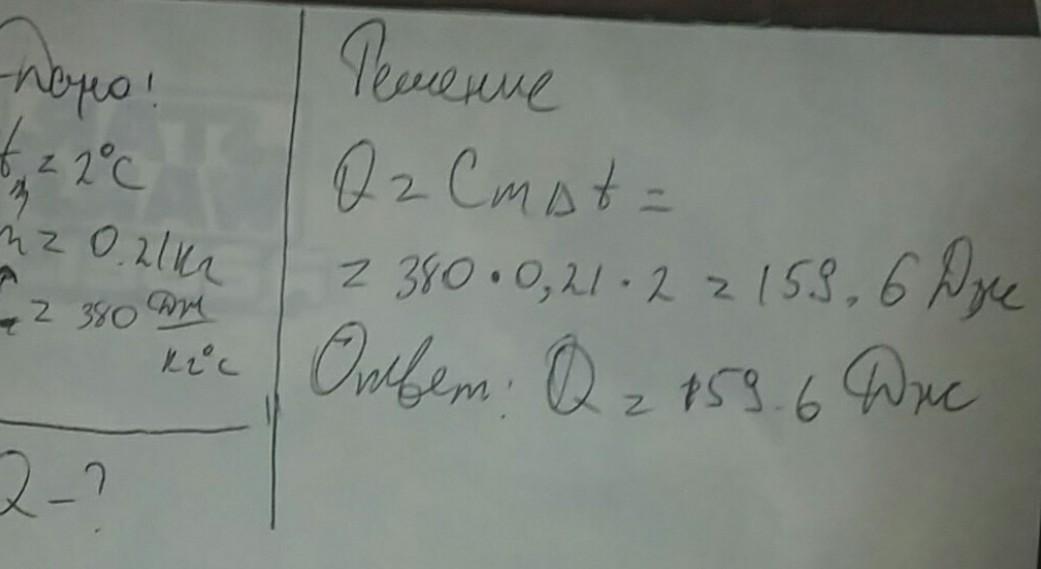 Дано:
t = 2°C
m = 0.21кг
c = 380 Дж
кг°C
Q - ?
Решение
Q = Cm∆t =
= 380 • 0,21 • 2 = 159,6 Дж
Ответ: Q = 159.6 Дж